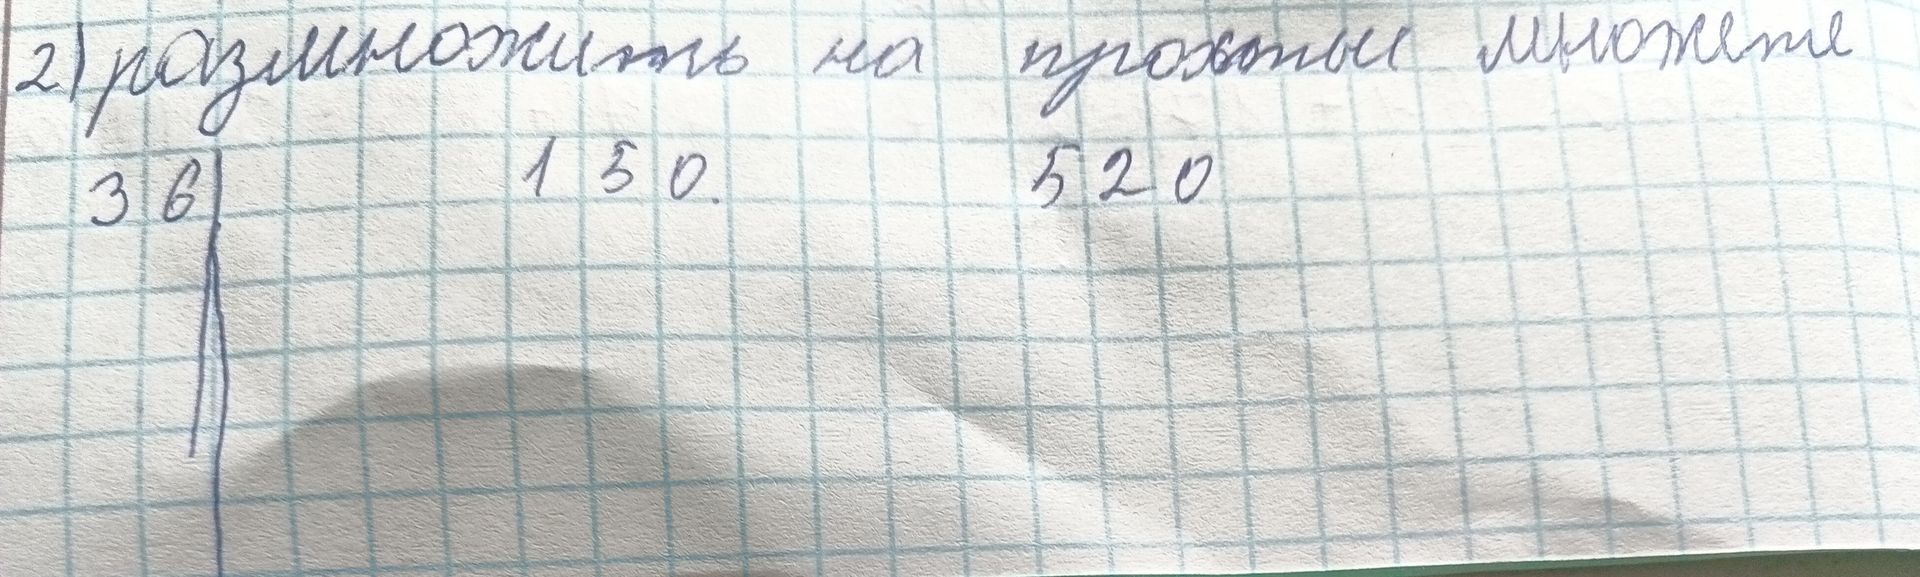 2) размножить на простые множете
36 150. 520